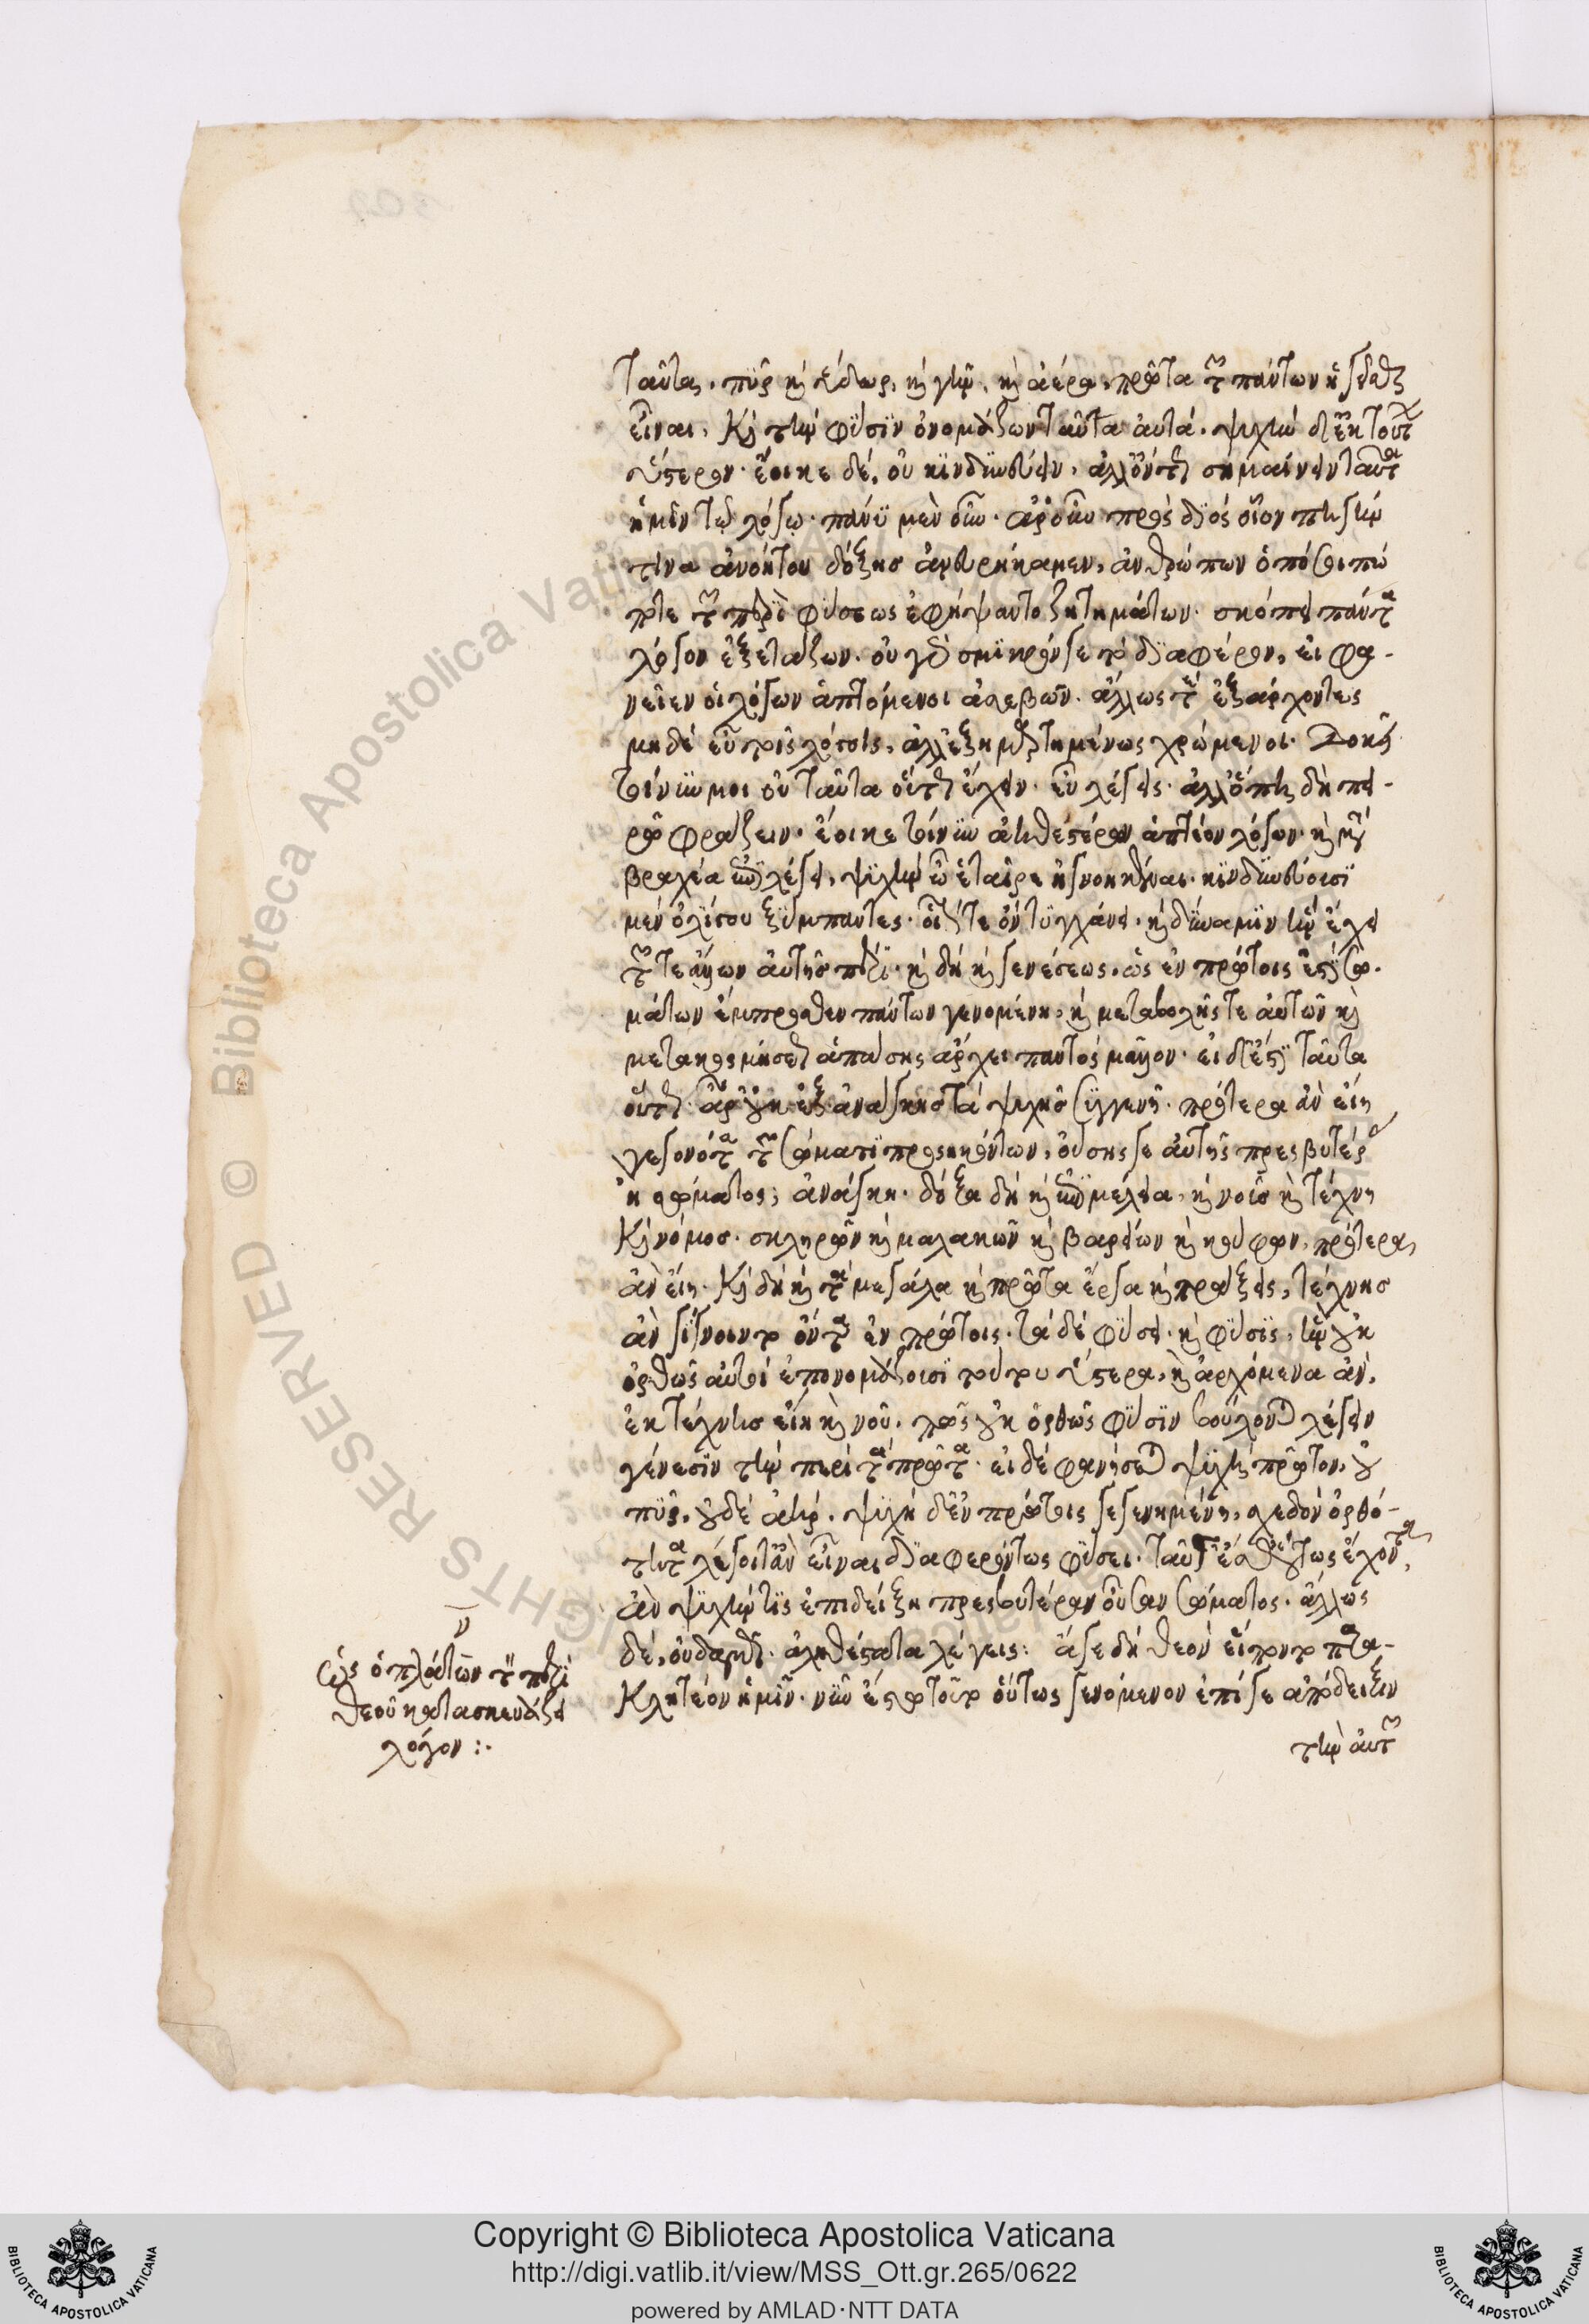 ταῦτα, πῦρ καὶ ὕδωρ, καὶ γῆν, καὶ ἀέρα, πρῶτα τῶν πάντων ἡγεῖσθαι
εἶναι. καὶ τὴν φύσιν ὀνομάζων ταῦτα αὐτά. ψυχὴν δ' ἐκ τούτων
ὕστερον. ἔοικε δέ, οὐ κινδυνεύειν, ἀλλ' ὄντως σημαίνειν ταῦτα
ἡμῖν τῷ λόγῳ. πάνυ μὲν οὖν. ἆρ' οὖν πρὸς διὸς οἷον πηγήν
τινα ἀνοήτου δόξης ἀνευρήκαμεν, ἀνθρώπων ὁπόσοι πώ
ποτε τῶν περὶ φύσεως ἐφήψαντο ζητημάτων. σκόπει πάντα
λόγον ἐξετάζων. οὐ γὰρ σμικρόν γε τὸ διαφέρον, εἰ φα-
νεῖεν οἱ λόγων ἁπτόμενοι ἀσεβῶν. ἄλλως τε ἐξάρχοντες
μηδὲ εὖ τοῖς λόγοις, ἀλλ' ἐξημαρτημένως χρώμενοι. Δοκεῖ
τοίνυν μοι οὐ ταῦτα οὕτως ἔχειν. εὖ λέγεις. ἀλλ' ὅπῃ δὴ πει-
ρῶ φράζειν. ἔοικε τοίνυν ἀηθεστέρων ἁπτέον λόγων.
βραχέα λέγει, ψυχὴν ὦ ἑταῖρε ἠγνοηκέναι. κινδυνεύουσι
μὲν ὀλίγου ξύμπαντες. οἷόν τε ὂν τυγχάνει. καὶ δύναμιν ἣν ἔχει
τῶν τε ἄλλων αὐτῆς πέρι. καὶ δὴ καὶ γενέσεως, ὡς ἐν πρώτοις ἐστὶ σω-
μάτων ἔμπροσθεν πάντων γενομένη, καὶ μεταβολῆς τε αὐτῶν καὶ
μετακοσμήσεως ἁπάσης ἄρχει παντὸς μᾶλλον. εἰ δ' ἔστι ταῦτα
οὕτως. ἆρ' οὐκ ἐξ ἀνάγκης τὰ ψυχῆς συγγενῆ. πρότερα ἂν εἴη
γεγονότα τῶν σώματι προσηκόντων, οὔσης γε αὐτῆς πρεσβυτέρας
ἢ σώματος; ἀνάγκη. δόξα δὴ καὶ ἐπιμέλεια, καὶ νοῦς καὶ τέχνη
καὶ νόμος. σκληρῶν καὶ μαλακῶν καὶ βαρέων καὶ κούφων, πρότερα
ἂν εἴη. καὶ δὴ καὶ τὰ μεγάλα καὶ πρῶτα ἔργα καὶ πράξεις, τέχνης
ἂν γίγνοιντο ὄντα ἐν πρώτοις. τὰ δὲ φύσει. καὶ φύσις, ἣν οὐκ
ὀρθῶς αὐτοὶ ἐπονομάζουσι τούτου ὕστερα, καὶ ἀρχόμενα ἂν,
ἐκ τέχνης εἴη καὶ νοῦ. πῶς οὐκ ὀρθῶς φύσιν βούλονται λέγειν
γένεσιν τὴν περὶ τὰ πρῶτα. εἰ δὲ φανήσεται ψυχὴ πρῶτον, οὐ
πῦρ, οὐδὲ ἀήρ. ψυχὴ δ' ἐν πρώτοις γεγενημένη, σχεδὸν ὀρθό-
τατα λέγοιτ' ἂν εἶναι διαφερόντως φύσει. ταῦτ' ἔσθ' οὕτως ἔχοντα,
ἂν ψυχήν τις ἐπιδείξῃ πρεσβυτέραν οὖσαν σώματος. ἄλλως
δὲ, οὐδαμῶς. ἀληθέστατα λέγεις: ἄγε δὴ θεὸν εἴποντο πα-
κλητέον ἡμῖν. νῦν ἔστω τοῦτο οὕτως γενόμενον ἐπί γε ἀπόδειξιν
τὴν αὐτῶν
ὡς ὁ πλάτων τὸν περὶ
θεοῦ κατασκευάζει
λόγον :.
Copyright © Biblioteca Apostolica Vaticana
http://digi.vatlib.it/view/MSS_Ott.gr.265/0622
powered by AMLAD·NTT DATA
BIBLIOTECA APOSTOLICA VATICANA
BIBLIOTECA APOSTOLICA VATICANA
RIGHTS RESERVED © Biblioteca Apostolica Vaticana